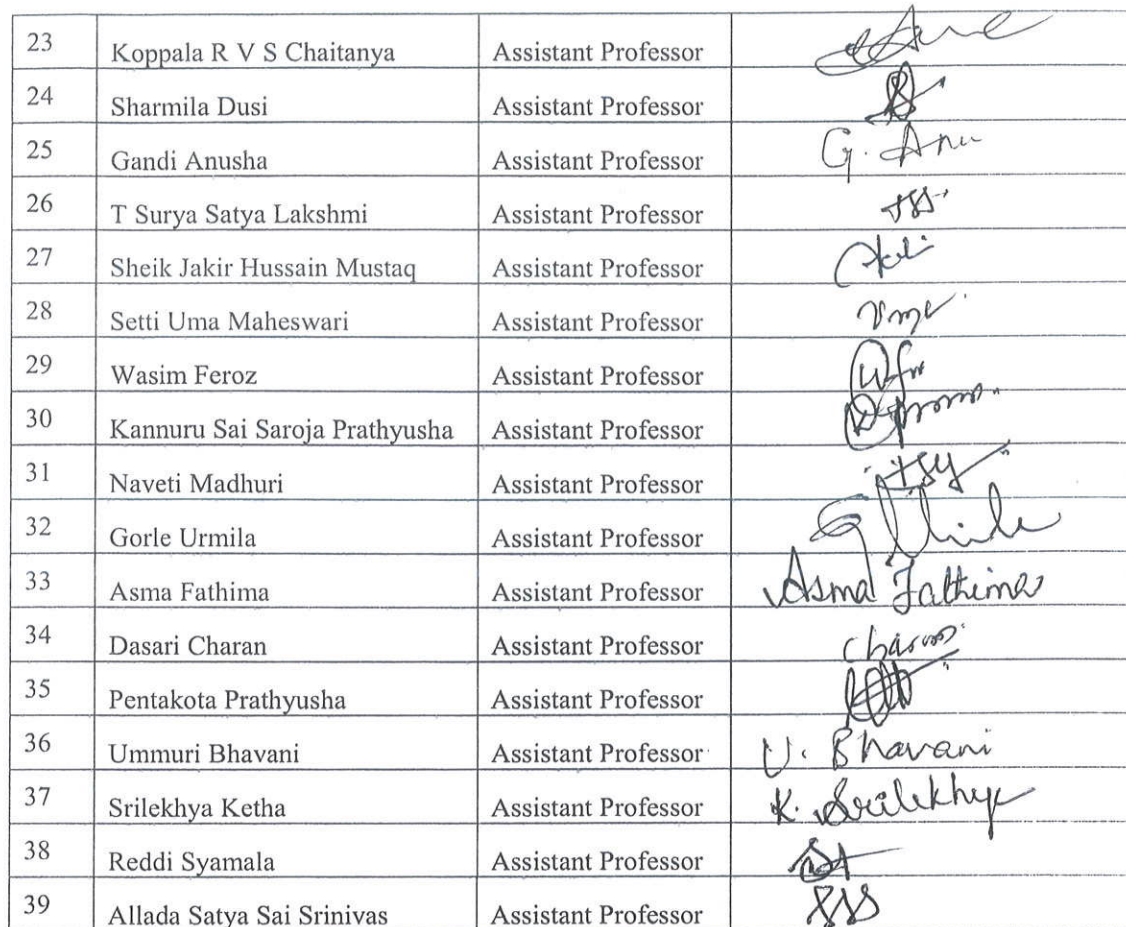 23 Koppala R V S Chaitanya Assistant Professor
24 Sharmila Dusi Assistant Professor
25 Gandi Anusha Assistant Professor G. Anu
26 T Surya Satya Lakshmi Assistant Professor
27 Sheik Jakir Hussain Mustaq Assistant Professor
28 Setti Uma Maheswari Assistant Professor
29 Wasim Feroz Assistant Professor
30 Kannuru Sai Saroja Prathyusha Assistant Professor
31 Naveti Madhuri Assistant Professor
32 Gorle Urmila Assistant Professor
33 Asma Fathima Assistant Professor Asma Fathima
34 Dasari Charan Assistant Professor
35 Pentakota Prathyusha Assistant Professor
36 Ummuri Bhavani Assistant Professor U. Bhavani
37 Srilekhya Ketha Assistant Professor K. Srilekhya
38 Reddi Syamala Assistant Professor
39 Allada Satya Sai Srinivas Assistant Professor